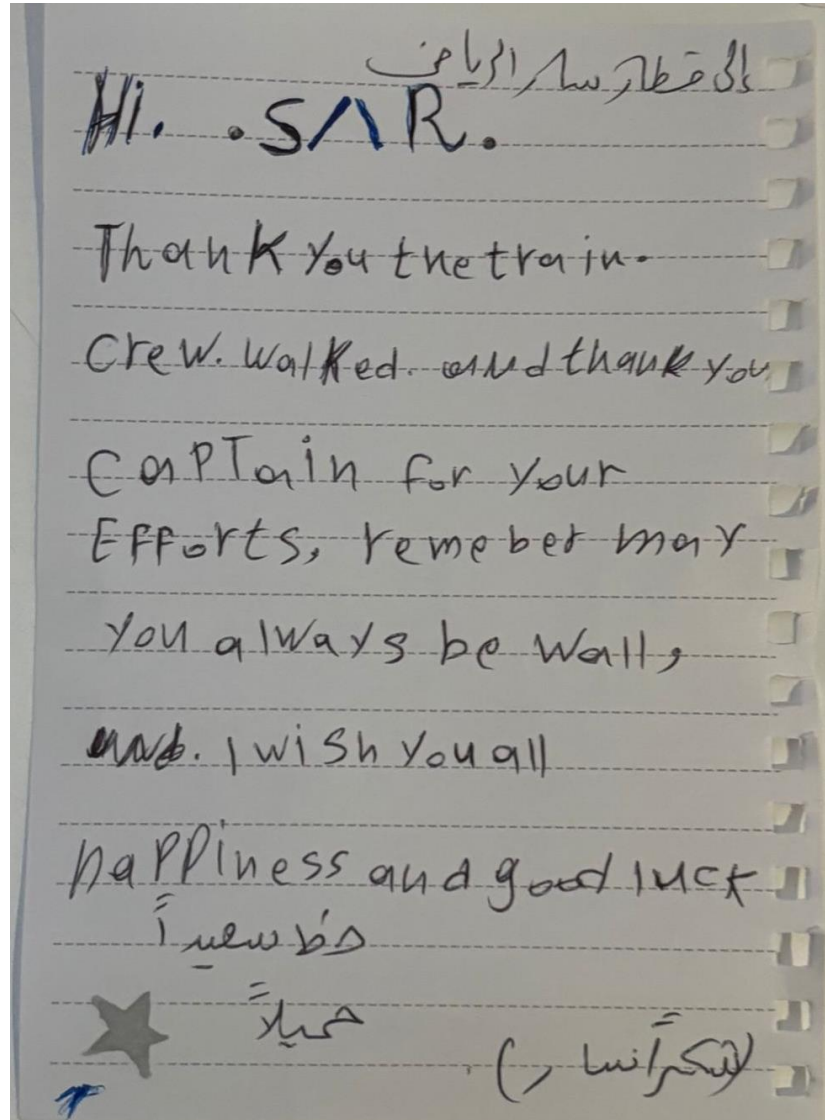 إلى قطار سار الرياض
Hi. .SAR.
Thank you the train.
Crew. Walked. and thank you
CapTain for your
Efforts, remeber may
you always be Wall,
and. I wish you all
happiness and good luck
حظ سعيداً
جميلاً
(شكراً سار)